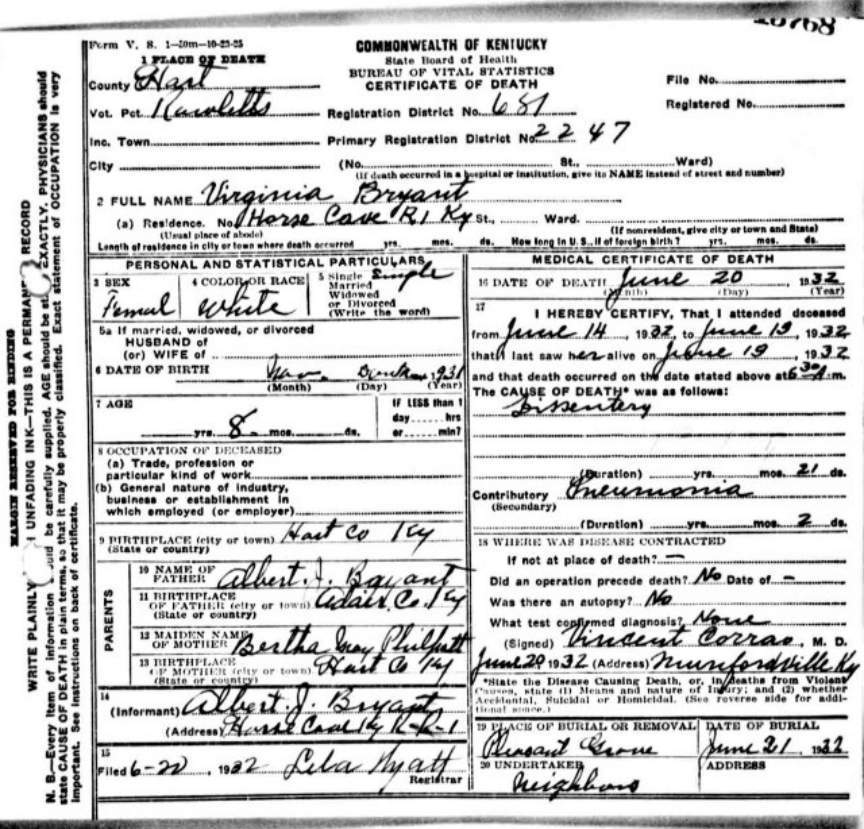 Form V. S. 1-50m-10-23-25
COMMONWEALTH OF KENTUCKY
State Board of Health
BUREAU OF VITAL STATISTICS
CERTIFICATE OF DEATH
1 PLACE OF DEATH
County Hart
Vot. Pct. Rowletts
Inc. Town
City
File No.
Registered No.
Registration District No. 681
Primary Registration District No. 2247
(No. St., Ward)
(If death occurred in a hospital or institution, give its NAME instead of street and number)
2 FULL NAME Virginia Bryant
(a) Residence. No. Horse Cave R1 Ky St., Ward.
(Usual place of abode)
(If nonresident, give city or town and State)
Length of residence in city or town where death occurred yrs. mos. ds. How long in U. S., if of foreign birth? yrs. mos. ds.
PERSONAL AND STATISTICAL PARTICULARS
3 SEX
Femal
4 COLOR OR RACE
White
5 Single Single
Married
Widowed
or Divorced
(Write the word)
5a If married, widowed, or divorced
HUSBAND of
(or) WIFE of
6 DATE OF BIRTH 1931
(Month) (Day) (Year)
7 AGE
yrs. 8 mos. ds.
IF LESS than 1
day hrs
or min?
8 OCCUPATION OF DECEASED
(a) Trade, profession or
particular kind of work
(b) General nature of industry,
business or establishment in
which employed (or employer)
9 BIRTHPLACE (city or town) Hart Co Ky
(State or country)
PARENTS
10 NAME OF
FATHER Albert. J. Bryant
11 BIRTHPLACE
OF FATHER (city or town) Adair Co. Ky
(State or country)
12 MAIDEN NAME
OF MOTHER Bertha May Philpott
13 BIRTHPLACE
OF MOTHER (city or town) Hart Co Ky
(State or country)
14
(Informant) Albert. J. Bryant
(Address) Horse Cave Ky R-R-1
15
Filed 6-20, 1932 Leba Wyatt
Registrar
MEDICAL CERTIFICATE OF DEATH
16 DATE OF DEATH June 20 1932
(Month) (Day) (Year)
17
I HEREBY CERTIFY, That I attended deceased
from June 14, 1932, to June 19, 1932
that I last saw her alive on June 19, 1932
and that death occurred on the date stated above at 6 30 A. m.
The CAUSE OF DEATH* was as follows:
Dissentery
(Duration) yrs. mos. 21 ds.
Contributory Pneumonia
(Secondary)
(Duration) yrs. mos. 2 ds.
18 WHERE WAS DISEASE CONTRACTED
If not at place of death? —
Did an operation precede death? No Date of —
Was there an autopsy? No
What test confirmed diagnosis? None
(Signed) Vincent Corrao, M. D.
June 20 1932 (Address) Munfordville Ky
*State the Disease Causing Death, or, in deaths from Violent
Causes, state (1) Means and nature of Injury; and (2) whether
Accidental, Suicidal or Homicidal. (See reverse side for addi-
tional space.)
19 PLACE OF BURIAL OR REMOVAL
Pleasant Grove
DATE OF BURIAL
June 21, 1932
20 UNDERTAKER
Neighbors
ADDRESS
MARGIN RESERVED FOR BINDING
WRITE PLAINLY UNFADING INK—THIS IS A PERMANE RECORD
N. B.—Every item of information should be carefully supplied. AGE should be st EXACTLY. PHYSICIANS should
state CAUSE OF DEATH in plain terms, so that it may be properly classified. Exact statement of OCCUPATION is very
important. See instructions on back of certificate.